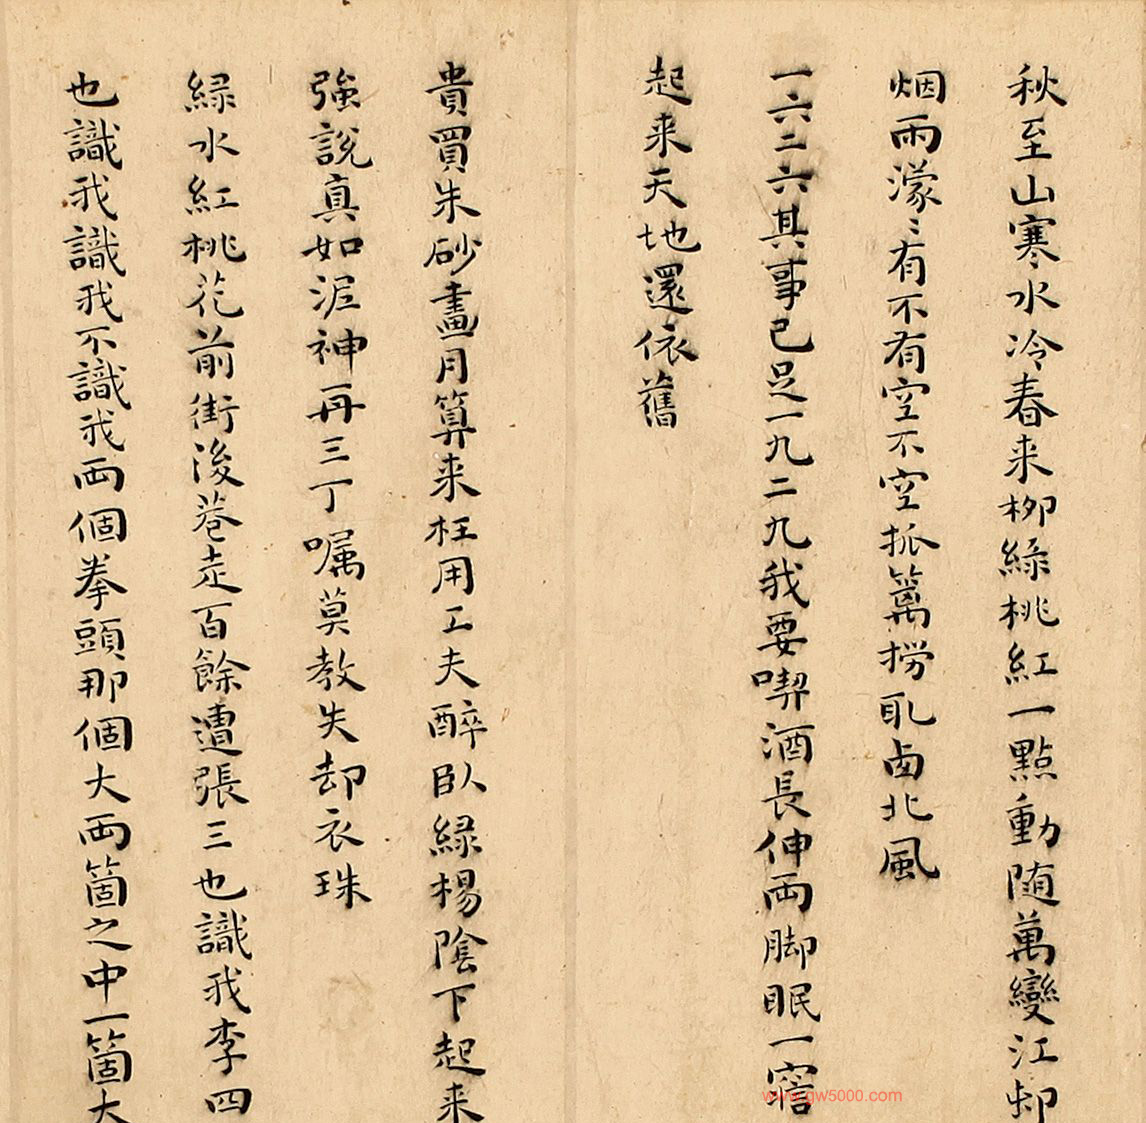 秋至山寒水冷春来柳緑桃紅一點動随萬變江邨
烟雨濛〻有不有空不空笊篱撈取西北風
一六二六其事已足一九二九我要喫酒長伸両脚眠一寤
起来天地還依舊
貴買朱砂畫月算来枉用工夫醉臥緑楊陰下起来
強説真如泥神再三丁嘱莫教失却衣珠
緑水紅桃花前街後巷走百餘遭張三也識我李四
也識我識我不識我両個拳頭那個大両箇之中一箇大
www.gw5000.com